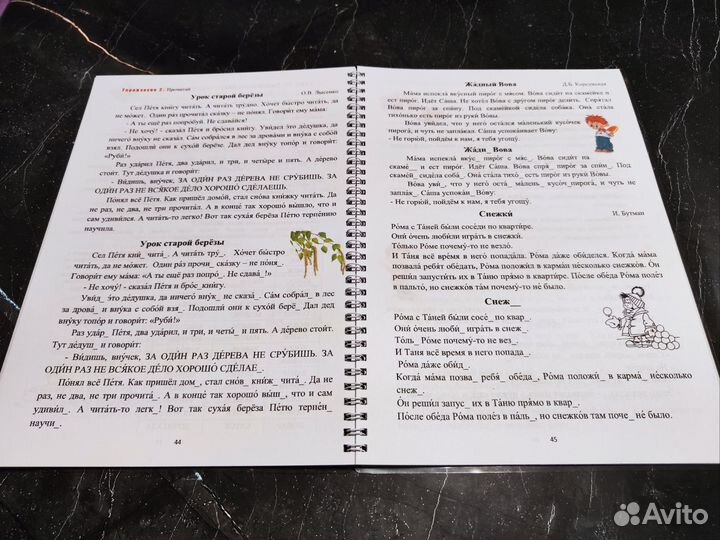 Упражнение 2. Прочитай
Урок старой берёзы
О.В. Лысенко
Сел Пе́тя кни́гу чита́ть. А чита́ть тру́дно. Хо́чет бы́стро чита́ть, да
не мо́жет. Оди́н раз прочита́л ска́зку – не по́нял. Говори́т ему́ ма́ма:
- А ты ещё раз попро́буй. Не сдава́йся!
- Не хочу́! - сказа́л Пе́тя и бро́сил кни́гу. Уви́дел э́то де́душка, да
ничего́ вну́ку не сказа́л. Сам собра́лся в лес за дрова́ми и вну́ка с собо́й
взял. Подошли́ они́ к сухо́й берёзе. Дал дед вну́ку топо́р и говори́т:
«Руби́!»
Раз уда́рил Пе́тя, два уда́рил, и три, и четы́ре и пять. А де́рево
стои́т. Тут де́душка и говори́т:
- Ви́дишь, вну́чек, ЗА ОДИ́Н РАЗ ДЕ́РЕВА НЕ СРУ́БИШЬ. ЗА
ОДИ́Н РАЗ НЕ ВСЯ́КОЕ ДЕ́ЛО ХОРОШО́ СДЕ́ЛАЕШЬ.
По́нял всё Пе́тя. Как пришёл домо́й, стал сно́ва кни́жку чита́ть. Да не
раз, не два, не три прочита́л. А в конце́ так хорошо́ вы́шло, что и
сам удиви́лся. А чита́ть-то легко́! Вот так суха́я берёза Пе́тю терпе́нию
научи́ла.
Урок старой берёзы
Сел Пе́тя кни́_ чита́_. А чита́ть тру́_. Хо́чет бы́стро
чита́ть, да не мо́жет. Оди́н раз прочи_ ска́зку – не по́ня_.
Говори́т ему́ ма́ма: «А ты ещё раз попро́_. Не сдава́_!»
- Не хочу́! - сказа́л Пе́тя и бро́сил_ кни́гу.
Уви́д_ э́то де́душка, да ничего́ вну́к_ не сказа́л. Сам собра́л_ в лес
за дрова́_ и вну́к_ с собо́й взя_. Подошли́ они́ к сухо́й берёз_. Дал дед
вну́ку топо́р и говори́т: «Руби́!»
Раз уда́р_ Пе́тя, два уда́рил, и три, и четы́_ и пять. А де́рево стои́т.
Тут де́душ_ и говори́т:
- Ви́дишь, вну́чек, ЗА ОДИ́Н РАЗ ДЕ́РЕВА НЕ СРУ́БИШЬ. ЗА
ОДИ́Н РАЗ НЕ ВСЯ́КОЕ ДЕ́ЛО ХОРОШО́ СДЕ́ЛАЕ_.
По́нял всё Пе́тя. Как пришёл дом_, стал сно́в_ кни́ж_ чита́ть. Да не
раз, не два, не три прочита́_. А в конце́ так хорошо́ вы́ш_, что и сам
удиви́л_. А чита́ть-то легк_! Вот так суха́я берёза Пе́тю терпе́н_
научи́_.
44
Жа́дный Вова
Д.Б. Кирсевская
Ма́ма испекла́ вку́сный пиро́г с мя́сом. Во́ва сиди́т на скаме́йке и
ест пиро́г. Идёт Са́ша. Не хоте́л Во́ва с дру́гом пиро́г дели́ть. Спря́тал
пиро́г за спи́ну. Под скаме́йкой сиде́ла соба́ка. Она́ ста́ла
тихо́нько есть пиро́г из руки́ Во́вы.
Во́ва уви́дел, что у него́ оста́лся ма́ленький кусо́чек
пирога́, и чуть не запла́кал. Са́ша успока́ивает Во́ву:
- Не горю́й, пойдём к нам, я тебя́ угощу́.
Жа́дн_ Вова
Ма́ма испекла́ вку́сн_ пиро́г с мя́с_. Во́ва сиди́т на
скаме́_ и ест пиро́г. Идёт Са́ша. Во́ва спря́_ пиро́г за спи́н_. Под
скаме́йкой сиде́ла соба́к_. Она́ ста́ла тихо́_ есть пиро́г из руки́ Во́вы.
Во́ва уви́_, что у него́ оста́_ ма́леньк_ кусо́ч_ пирога́, и чуть не
запла́к_. Са́ша успока́и_ Во́ву:
- Не горю́й, пойдём к нам, я тебя́ угощу́.
Снежки́
И. Бутман
Ро́ма с Та́ней бы́ли сосе́ди по кварти́ре.
Они́ о́чень люби́ли игра́ть в снежки́.
То́лько Ро́ме почему́-то не везло́.
И Та́ня всё вре́мя в него́ попада́ла. Ро́ма да́же оби́делся. Когда́ ма́ма
позвала́ ребя́т обе́дать, Ро́ма положи́л в карма́н не́сколько снежко́в. Он
реши́л запусти́ть их в Та́ню пря́мо в кварти́ре. По́сле обе́да Ро́ма поле́з
в пальто́, но снежко́в там почему́-то не́ было.
Снеж__
Ро́ма с Та́ней бы́ли сосе́_ по квар_.
Они́ о́чень люби́_ игра́ть в снеж_.
То́ль_ Ро́ме почему́-то не вез_.
И Та́ня всё вре́мя в него́ попада_.
Ро́ма да́же оби́д_.
Когда́ ма́ма позва_ ребя́_ обе́да_, Ро́ма положи́_ в карма́_ не́сколько
снеж_.
Он реши́л запус_ их в Та́ню пря́мо в квар_.
По́сле обе́да Ро́ма поле́з в па́ль_, но снежко́в там поче_ не́ было.
45
Avito